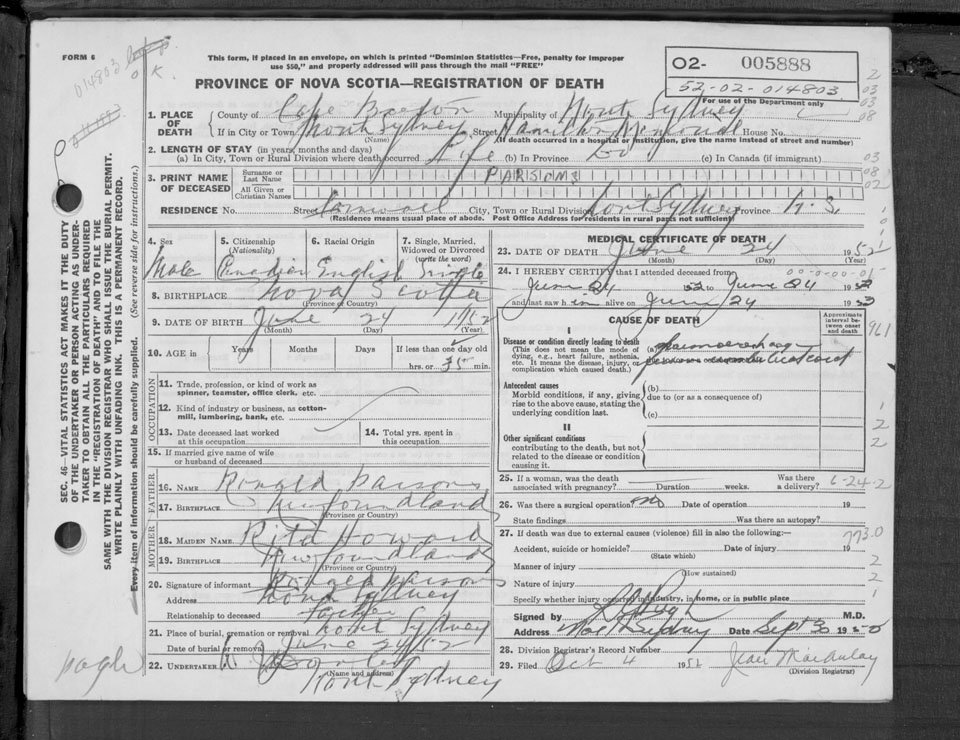 FORM 6
This form, if placed in an envelope, on which is printed "Dominion Statistics—Free, penalty for improper
use $50," and properly addressed will pass through the mail "FREE"
O2- 005888
52-02-014803
For use of the Department only
014803
O K.
PROVINCE OF NOVA SCOTIA—REGISTRATION OF DEATH
1. PLACE OF DEATH
County of Cape Breton Municipality of North Sydney
If in City or Town North Sydney Street Hamilton Memorial House No.
(Name) (If death occurred in a hospital or institution, give the name instead of street and number)
2. LENGTH OF STAY (in years, months and days)
(a) In City, Town or Rural Division where death occurred Life (b) In Province (c) In Canada (if immigrant)
3. PRINT NAME OF DECEASED
Surname or Last Name PARSONS
All Given or Christian Names
RESIDENCE No. Street City, Town or Rural Division North Sydney Province N.S.
(Residence means usual place of abode. Post Office Address for residents in rural parts not sufficient)
4. Sex
Male
5. Citizenship (Nationality)
Canadian
6. Racial Origin
English
7. Single, Married, Widowed or Divorced (write the word)
Single
8. BIRTHPLACE Nova Scotia
(Province or Country)
9. DATE OF BIRTH June 24 1952
(Month) (Day) (Year)
10. AGE in Years Months Days If less than one day old
hrs. or 35 min.
OCCUPATION
11. Trade, profession, or kind of work as
spinner, teamster, office clerk, etc.
12. Kind of industry or business, as cotton-
mill, lumbering, bank, etc.
13. Date deceased last worked
at this occupation
14. Total yrs. spent in
this occupation
15. If married give name of wife
or husband of deceased
FATHER
16. NAME Ronald Parsons
17. BIRTHPLACE Newfoundland
(Province or Country)
MOTHER
18. MAIDEN NAME Rita Howard
19. BIRTHPLACE Newfoundland
(Province or Country)
20. Signature of informant Ronald Parsons
Address North Sydney
Relationship to deceased Father
21. Place of burial, cremation or removal North Sydney
Date of burial or removal June 24/52
22. UNDERTAKER
(Name and address)
North Sydney
MEDICAL CERTIFICATE OF DEATH
23. DATE OF DEATH June 24 1952
(Month) (Day) (Year)
24. I HEREBY CERTIFY that I attended deceased from
June 24 1952 to June 24 195
and last saw h im alive on June 24 195
CAUSE OF DEATH
Approximate interval between onset and death
I
Disease or condition directly leading to death
(This does not mean the mode of
dying, e.g., heart failure, asthenia,
etc. It means the disease, injury, or
complication which caused death.)
(a)
Antecedent causes
Morbid conditions, if any, giving
rise to the above cause, stating the
underlying condition last.
(b)
due to (or as a consequence of)
(c)
II
Other significant conditions
contributing to the death, but not
related to the disease or condition
causing it.
25. If a woman, was the death
associated with pregnancy? Duration weeks. Was there a delivery?
6-24-2
26. Was there a surgical operation? no Date of operation 19
State findings Was there an autopsy?
27. If death was due to external causes (violence) fill in also the following:—
Accident, suicide or homicide? Date of injury 19
(State which)
Manner of injury
(How sustained)
Nature of injury
Specify whether injury occurred in industry, in home, or in public place
Signed by M.D.
Address Date Sept 30 195
28. Division Registrar's Record Number
29. Filed Oct 4 1952 Jean MacAulay
(Division Registrar)
961
773.0
SEC. 46—VITAL STATISTICS ACT MAKES IT THE DUTY
OF THE UNDERTAKER OR PERSON ACTING AS UNDER-
TAKER TO OBTAIN ALL THE PARTICULARS REQUIRED
IN THE "REGISTRATION OF DEATH" AND TO FILE THE
SAME WITH THE DIVISION REGISTRAR WHO SHALL ISSUE THE BURIAL PERMIT.
WRITE PLAINLY WITH UNFADING INK. THIS IS A PERMANENT RECORD.
Every item of information should be carefully supplied. (See reverse side for instructions.)